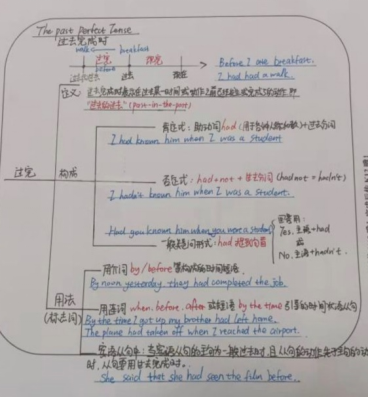 The past Perfect Tense
过去完成时
walk breakfast
过完
before
过去 现在
Before I ate breakfast,
I had had a walk.
定义
"过去的过去" (past-in-the-past)
过完
构成
肯定式: 助动词had (用于各种人称和数) + 过去分词
I had known him when I was a student
否定式: had + not + 过去分词 (had not = hadn't)
I hadn't known him when I was a student.
Had you known him when you were a student?
一般疑问形式: had 提到句首
回答用:
Yes, 主语+had
或
No, 主语+hadn't.
用法
(标志词)
用介词 by / before 等构成的时间短语
By noon yesterday, they had completed the job.
用连词 when, before, after 或短语 by the time 引导的时间状语从句
By the time I got up my brother had left home.
The plane had taken off when I reached the airport.
宾语从句中: 当宾语从句的主句为一般过去时, 且从句的动作先于主句的动作
时, 从句要用过去完成时。
She said that she had seen the film before.